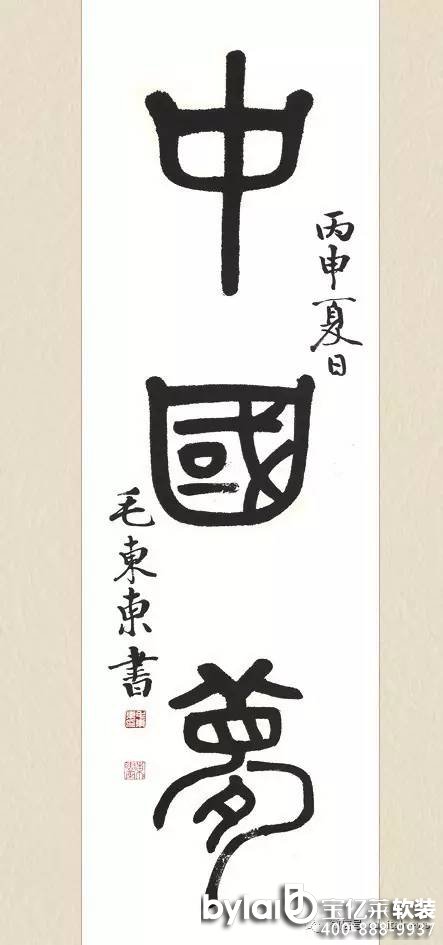 中國夢
丙申夏日
毛東東書
bylai
宝亿莱软装
400-888-9937